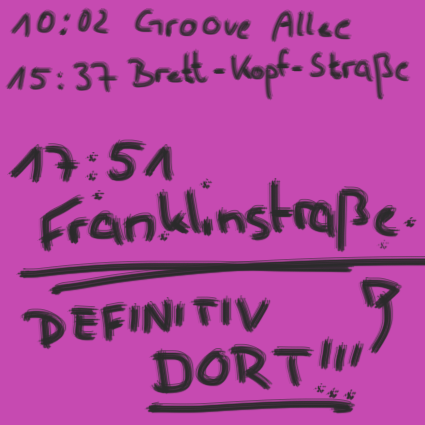 10:02 Groove Allee
15:37 Brett-Kopf-Straße
17:51
Franklinstraße
DEFINITIV
DORT!!!